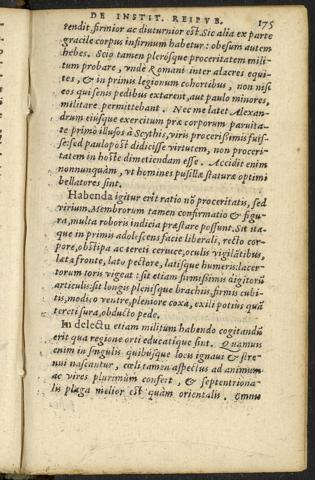 DE INSTIT. REIPVB. 175
rendit, firmior ac diuturnior est. Sic alia ex parte
gracile corpus infirmum habetur: obesum autem
hebes. Scio tamen plerósque proceritatem mili-
tum probare, vnde Romani inter alacres equi-
tes, & in primis legionum cohortibus, non nisi
eos qui senis pedibus extarent, aut paulo minores,
militare permittebant. Nec me latet Alexan-
drum eiusque exercitum præ corporum paruita-
te primò illusos à Scythis, viris procerissimis fuis-
se: sed paulopost didicisse virtutem, non proceri-
tatem in hoste dimetiendam esse. Accidit enim
nonnunquàm, vt homines pusillæ staturæ optimi
bellatores sint.
Habenda igitur erit ratio nõ proceritatis, sed
virium. Membrorum tamen confirmatio & figu-
ra, multa roboris indicia præstare possunt. Sit ita-
que in primis adolescens facie liberali, recto cor-
pore, obstipa ac tereti ceruice, oculis vigilãtibus,
lata fronte, lato pectore, latisque humeris: lacer-
torum toris vigeat: sit etiam firmissimis digitorũ
articulis: sit longis plenisque brachiis, firmis cubi-
tis, modico ventre, pleniore coxa, exili potiùs quã
tereti sura, obducto pede.
In delectu etiam militum habendo cogitandũ
erit qua regione orti educatique sint. Quamuis
enim in singulis quibúsque locis ignaui & stre-
nui nascantur, cœli tamen aspectus ad animum
ac vires plurimùm confert, & septentriona-
lis plaga melior est quàm orientalis. Omnis